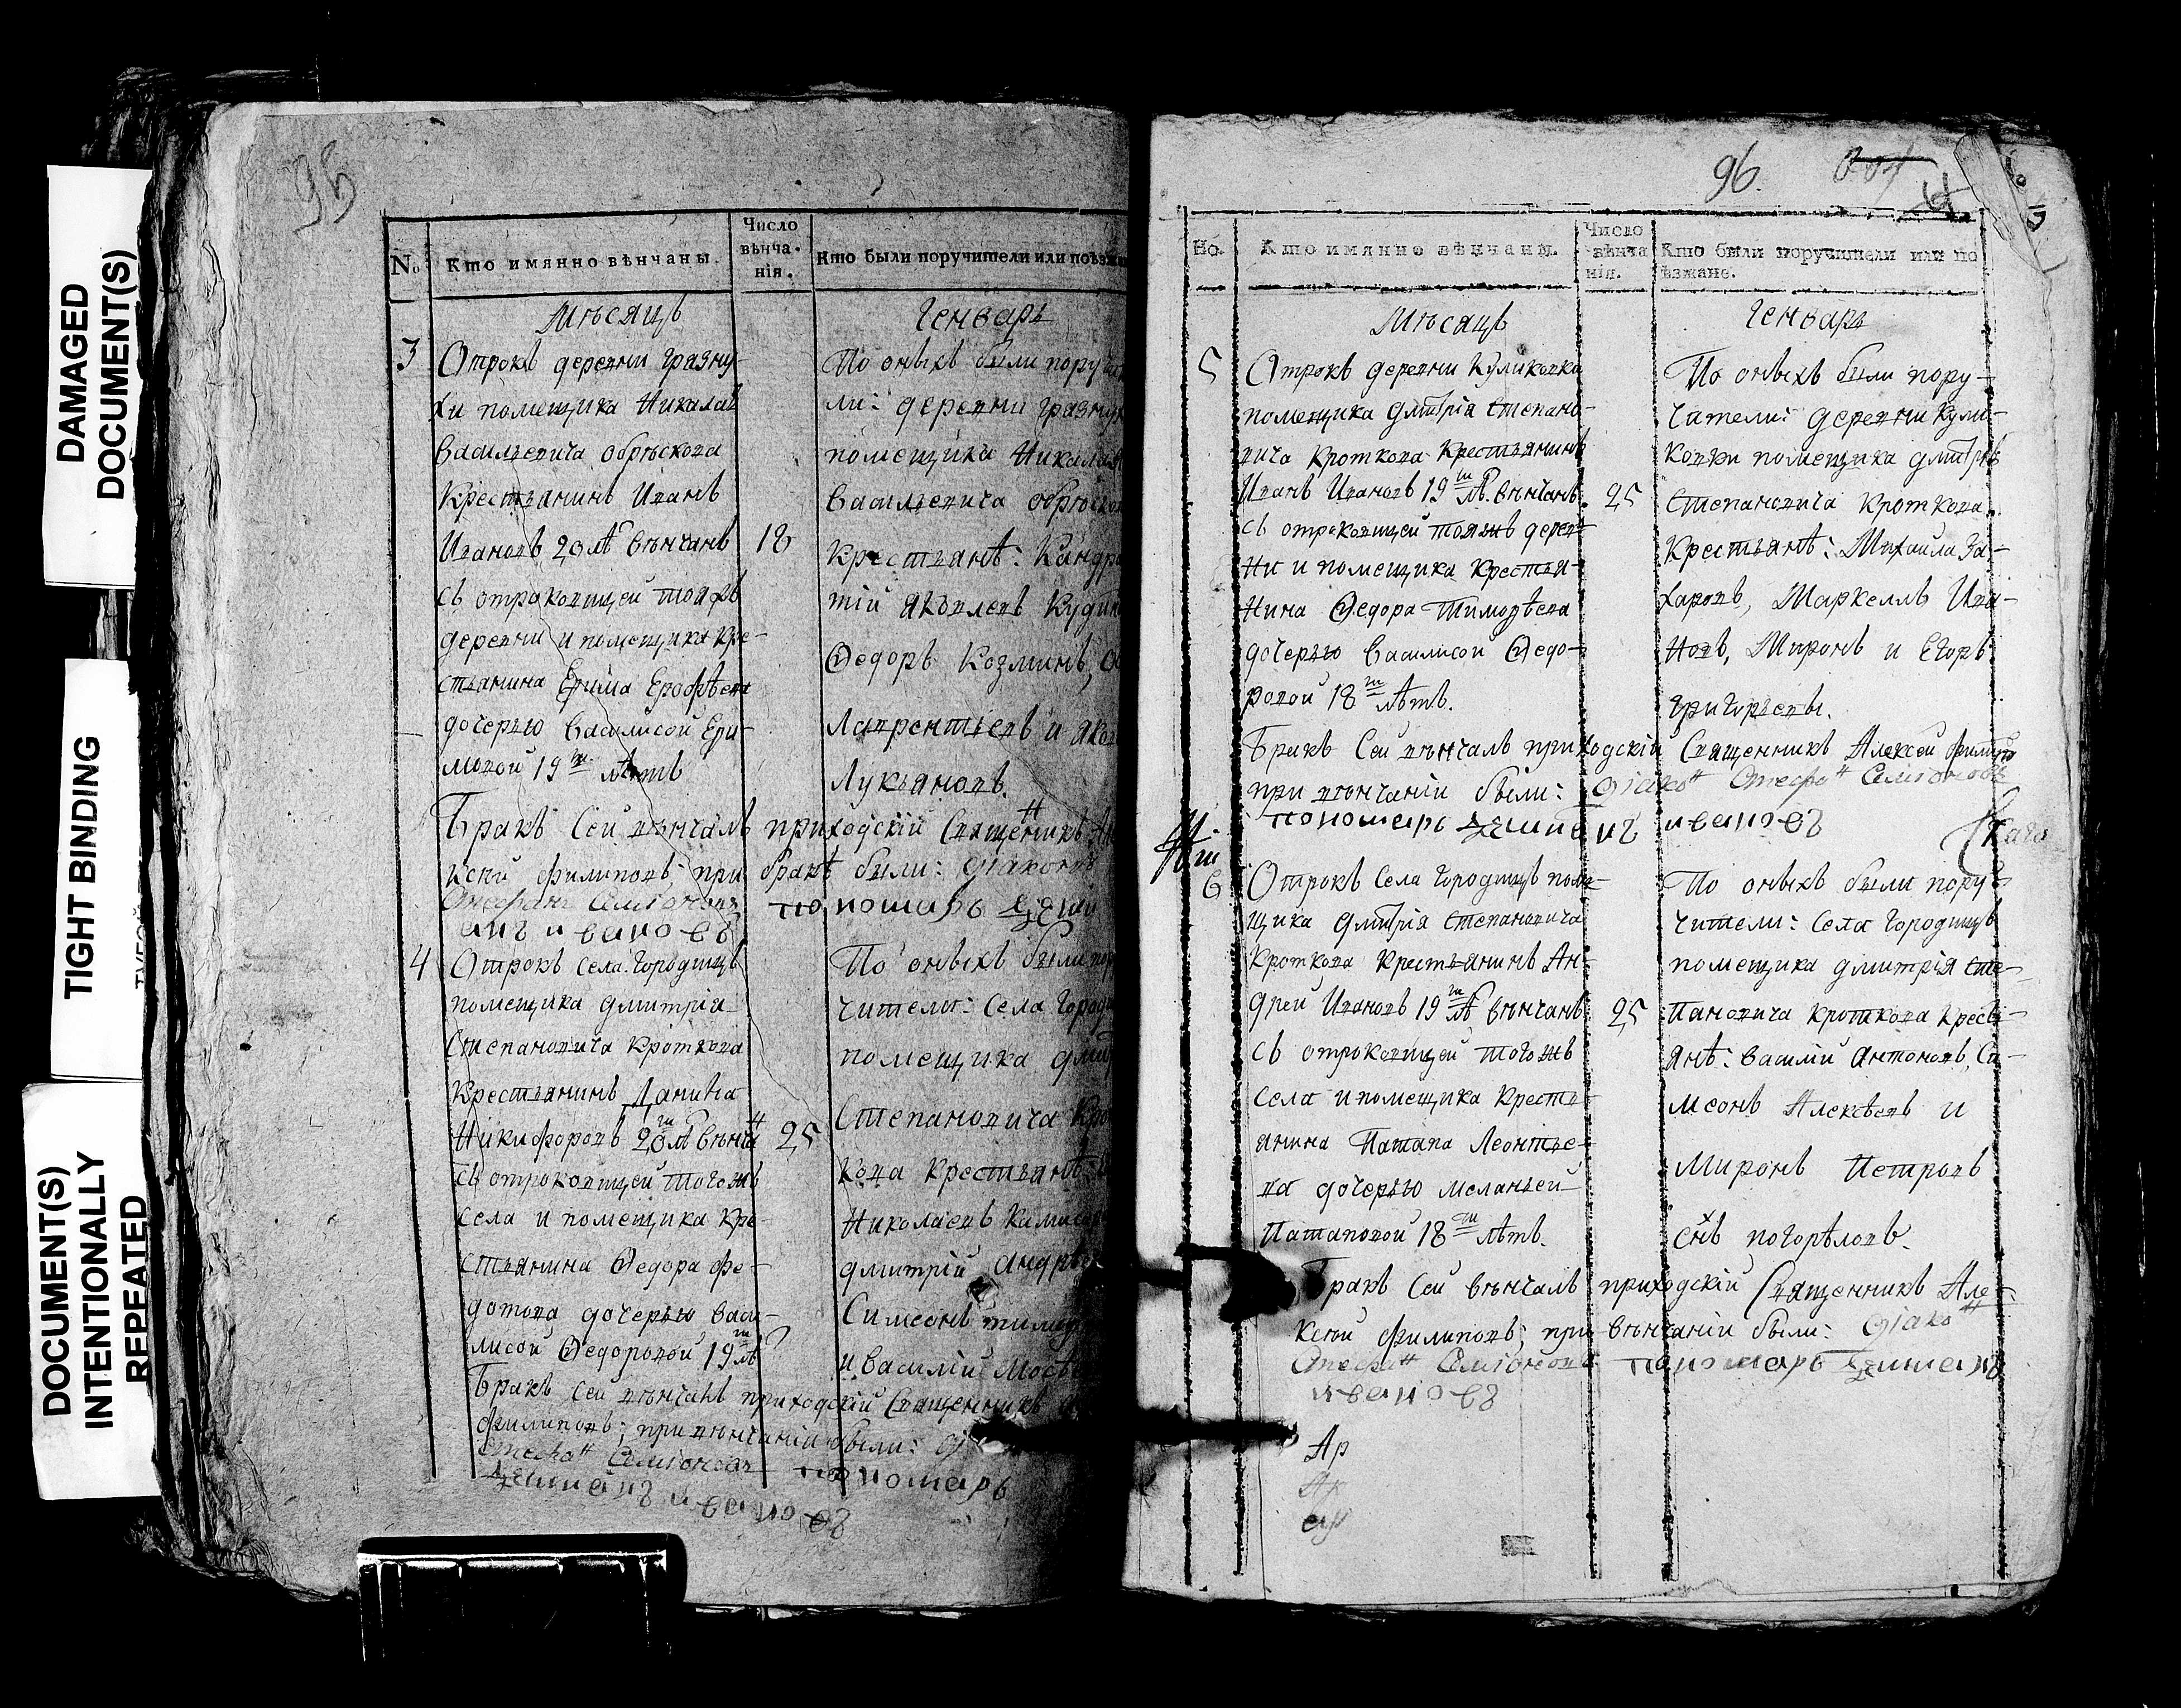 DAMAGED
DOCUMENT(S)
TIGHT BINDING
DOCUMENT(S)
INTENTIONALLY
REPEATED
95
№
Кто имянно вѣнчаны.
Число
вѣнча-
нія.
Кто были поручители или поѣз
Мѣсяцъ
Генварь
3
Отрокъ деревни Грязну-
хи помещика Никалая
Васильевича обрѣскова
Крестьянинъ Иванъ
Ивановъ 20 лѣ вѣнчанъ
18
съ отроковицей тояжъ
деревни и помещика кре-
стьянина Ефима Ерофѣева
дочерью Василисой Ефи-
мовой 19ти лѣтъ
По оныхъ были поручи
ли: деревни Грязнух
помещика Никалая
Васильевича обрѣско
Крестьянѣ: Кандра
тій Яковлевъ Куди
Ѳедоръ Козминъ,
Лаврентьевъ и Яко
Лукьяновъ.
Бракъ Сей вѣнчалъ приходскій Священникъ Ал
ксѣй Филиповъ; при бракѣ были: діаконъ
Стефанъ Симіоновъ пономарь
ивановъ
4
Отрокъ села Городищъ
помещика дмитрія
Степановича Кроткова
Крестьянинъ Данила
Никифоровъ 20ти лѣ вѣнчанъ
25
съ отроковицей тогожъ
села и помещика кре-
стьянина Ѳедора фе-
дотова дочерью Васи-
лисой Ѳедоровой 19ти лѣ
По оныхъ были пору
чители: села Городи
помещика дми
Степановича Кро
кова Крестьянѣ:
Николаевъ
дмитрій Андрѣ
Симеонъ тимоф
и Василій
Бракъ сей вѣнчалъ приходскій Священникъ
Филиповъ; при вѣнчаніи были:
Стефанъ Симіоновъ пономарь
ивановъ
96.
Но.
Кто имянно вѣнчаны.
Число
вѣнча
нія.
Кто были поручители или по
ѣзжане.
Мѣсяцъ
Генварь
5
Отрокъ деревни Куликовка
помещика дмитрія Степано-
вича Кроткова Крестьянинъ
Иванъ Ивановъ 19ти лѣ. вѣнчанъ
25
съ отроковицей тояжъ дерев-
ни и помещика Крестья-
нина Ѳедора Тимофѣева
дочерью Василисой Ѳедо-
ровой 18ти лѣтъ.
По оныхъ были пору-
чители: деревни Кули-
ковки помещика дмитрія
Степановича Кроткова
Крестьянѣ: Михаила За-
харовъ, Маркеллъ Ива-
новъ, Миронъ и Егоръ
григорьевы.
Бракъ Сей вѣнчалъ приходскій Священникъ Алексѣй Филипо
при вѣнчаніи были: діаконъ Стефанъ Симіоновъ
пономарь ивановъ
6
Отрокъ Села Городищъ поме-
щика дмитрія Степановича
Кроткова Крестьянинъ Ан-
дрей Ивановъ 19ти лѣ вѣнчанъ
25
съ отроковицей тогожъ
Села и помещика Кресть-
янина Патапа Леонтье-
ва дочерью меланьей
Патаповой 18ти лѣтъ.
По оныхъ были пору-
чители: Села Городищъ
помещика дмитрія Сте-
пановича Кроткова Кресть-
янѣ: Василій Антоновъ, Си-
меонъ Алексѣевъ и
Миронъ Петровъ
снъ погорѣловъ.
Бракъ Сей вѣнчалъ приходскій Священникъ Але-
ксѣй Филиповъ; при вѣнчаніи были: діаконъ
Стефанъ Симіоновъ пономарь
ивановъ
Ар
Ар
ар